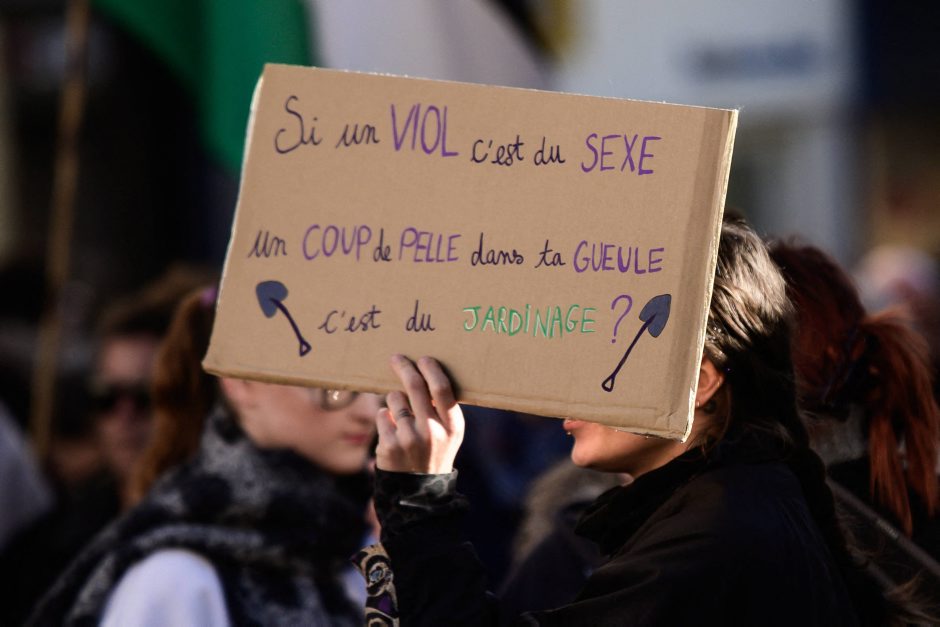 Si un VIOL c'est du SEXE
Un COUP de PELLE dans ta GUEULE
c'est du JARDINAGE ?